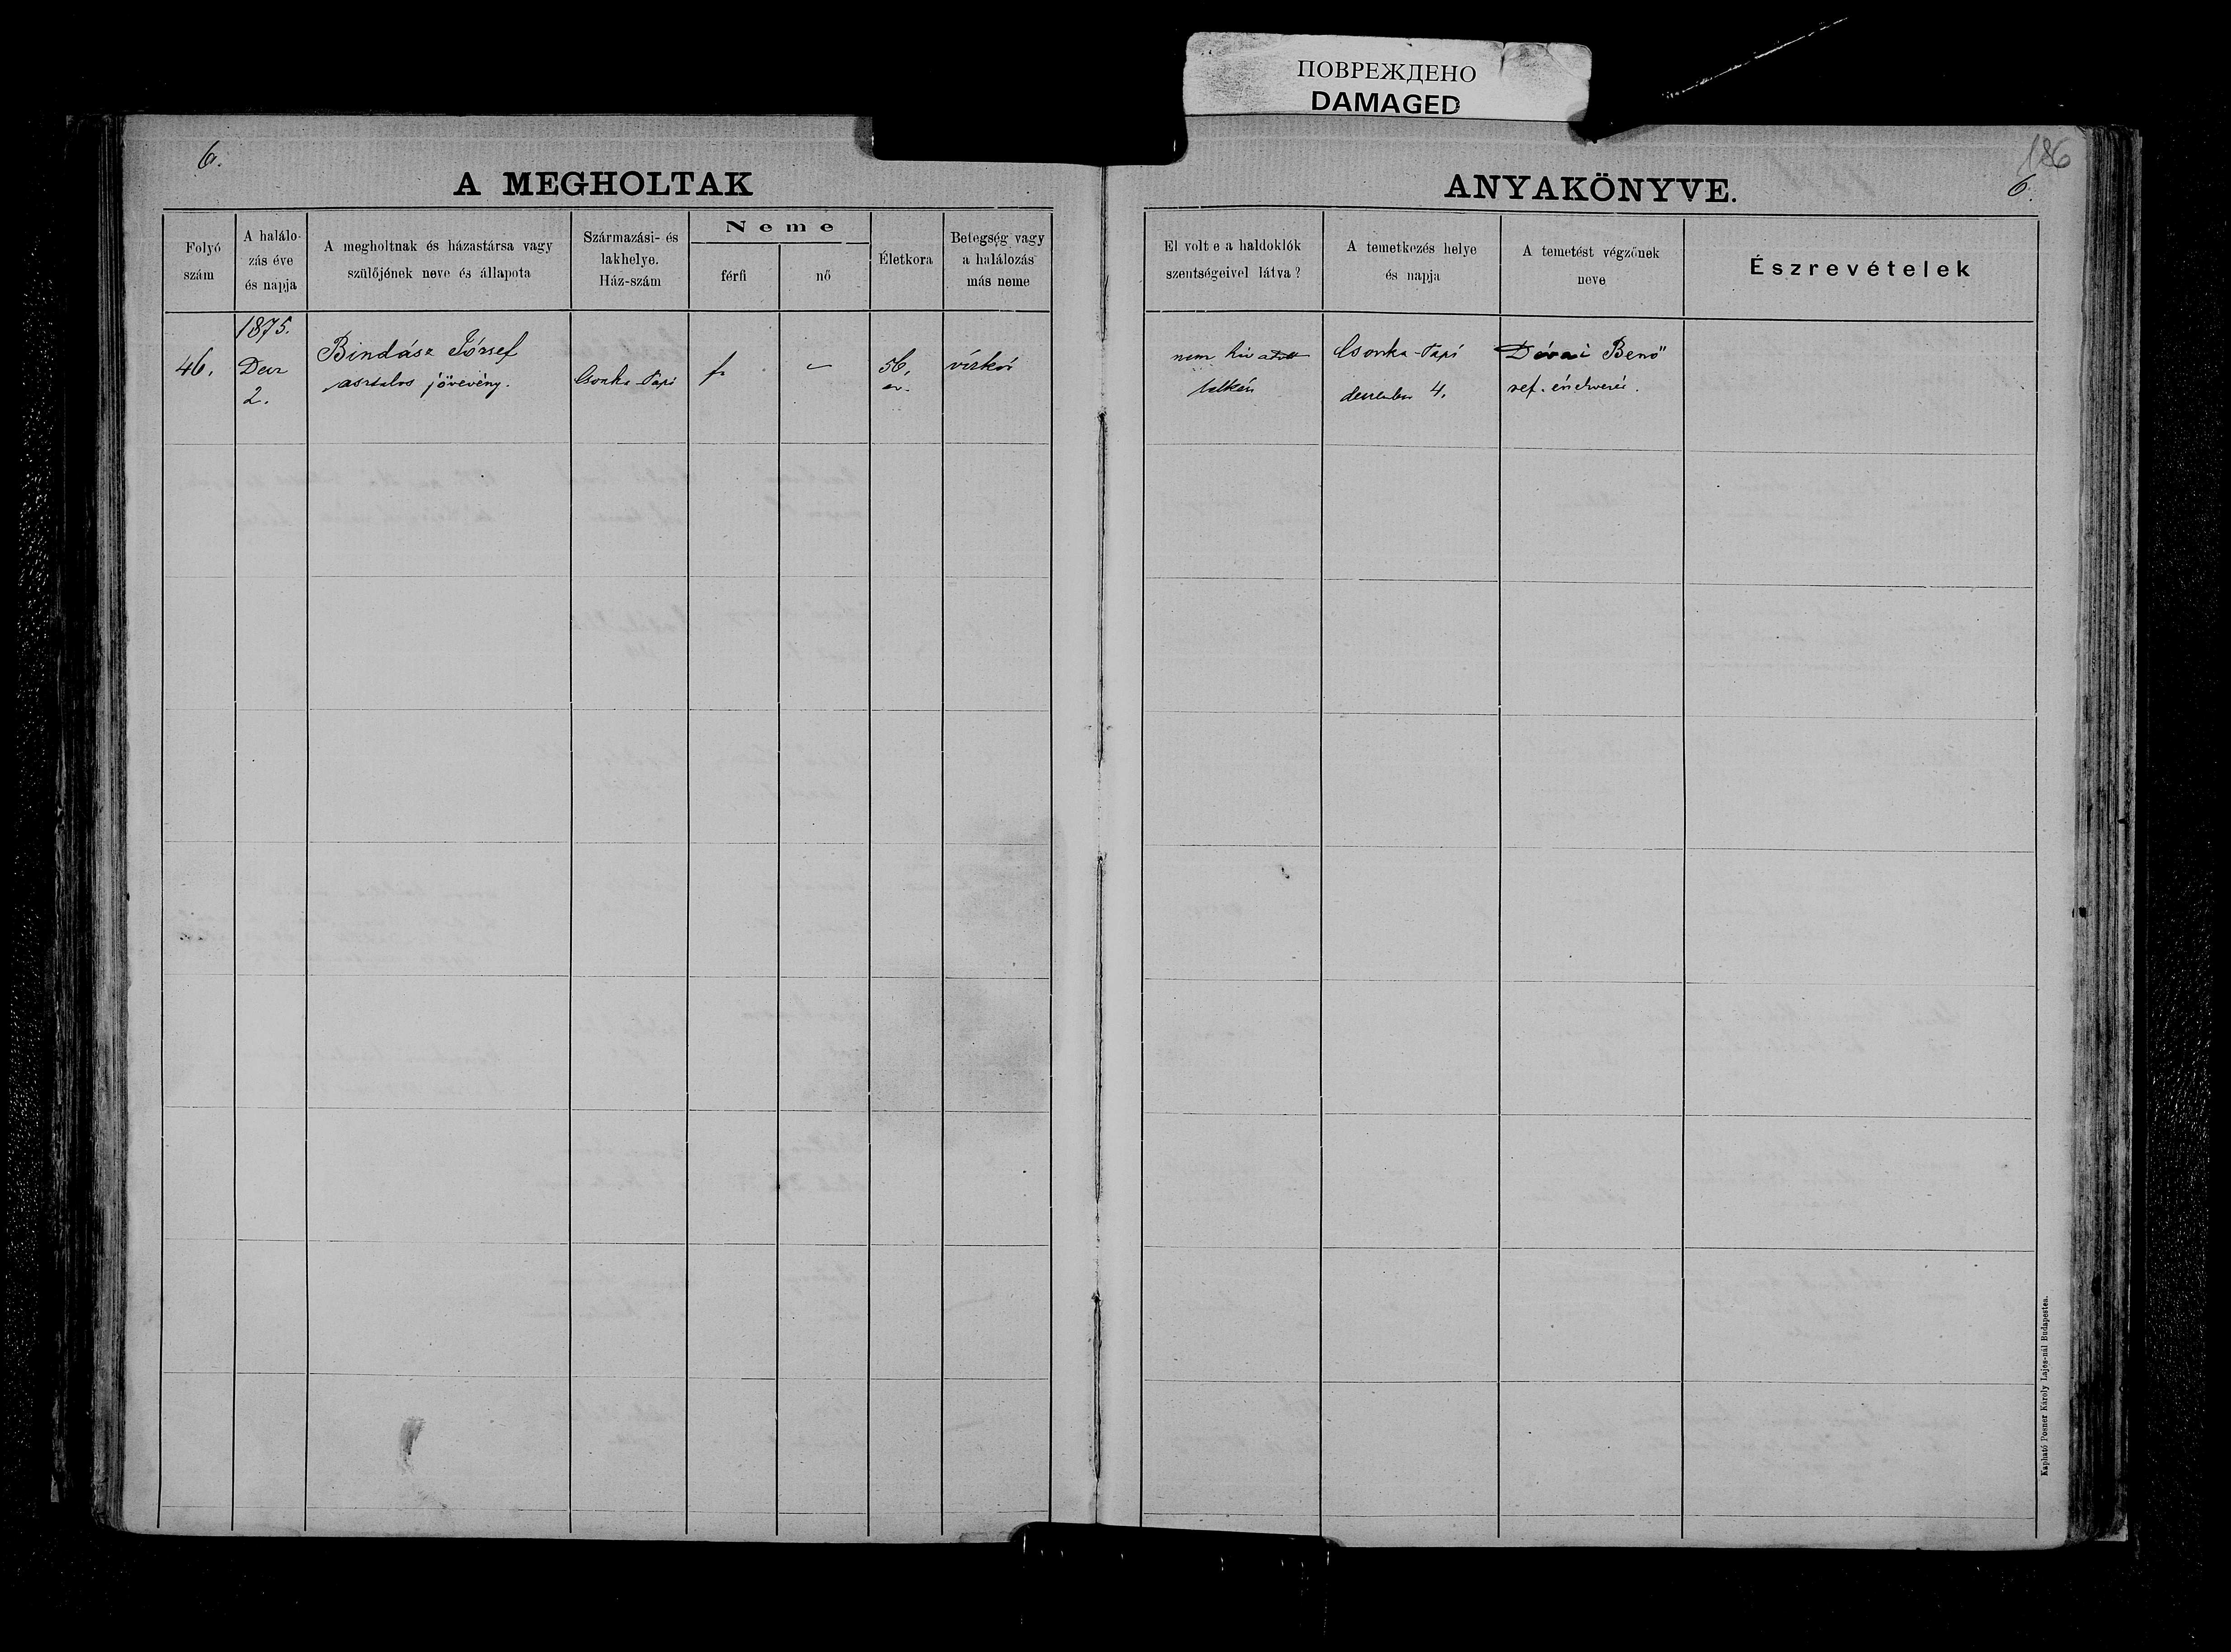 ПОВРЕЖДЕНО
DAMAGED
6.
A MEGHOLTAK
Folyó
szám
A halálo-
zás éve
és napja
A megholtnak és házastársa vagy
szülőjének neve és állapota
Származási- és
lakhelye.
Ház-szám
Neme
férfi
nő
Életkora
Betegség vagy
a halálozás
más neme
46.
1875.
Decz
2.
Bindász József
asztalos jövevény.
Csonka-Papi
f.
56,
év.
vízkór
186
6.
ANYAKÖNYVE.
El volt e a haldoklók
szentségeivel látva?
A temetkezés helye
és napja
A temetést végzőnek
neve
Észrevételek
nem
Csonka-Papi
december 4.
Dávai Benő
ref.
Kapható Posner Károly Lajos-nál Budapesten.